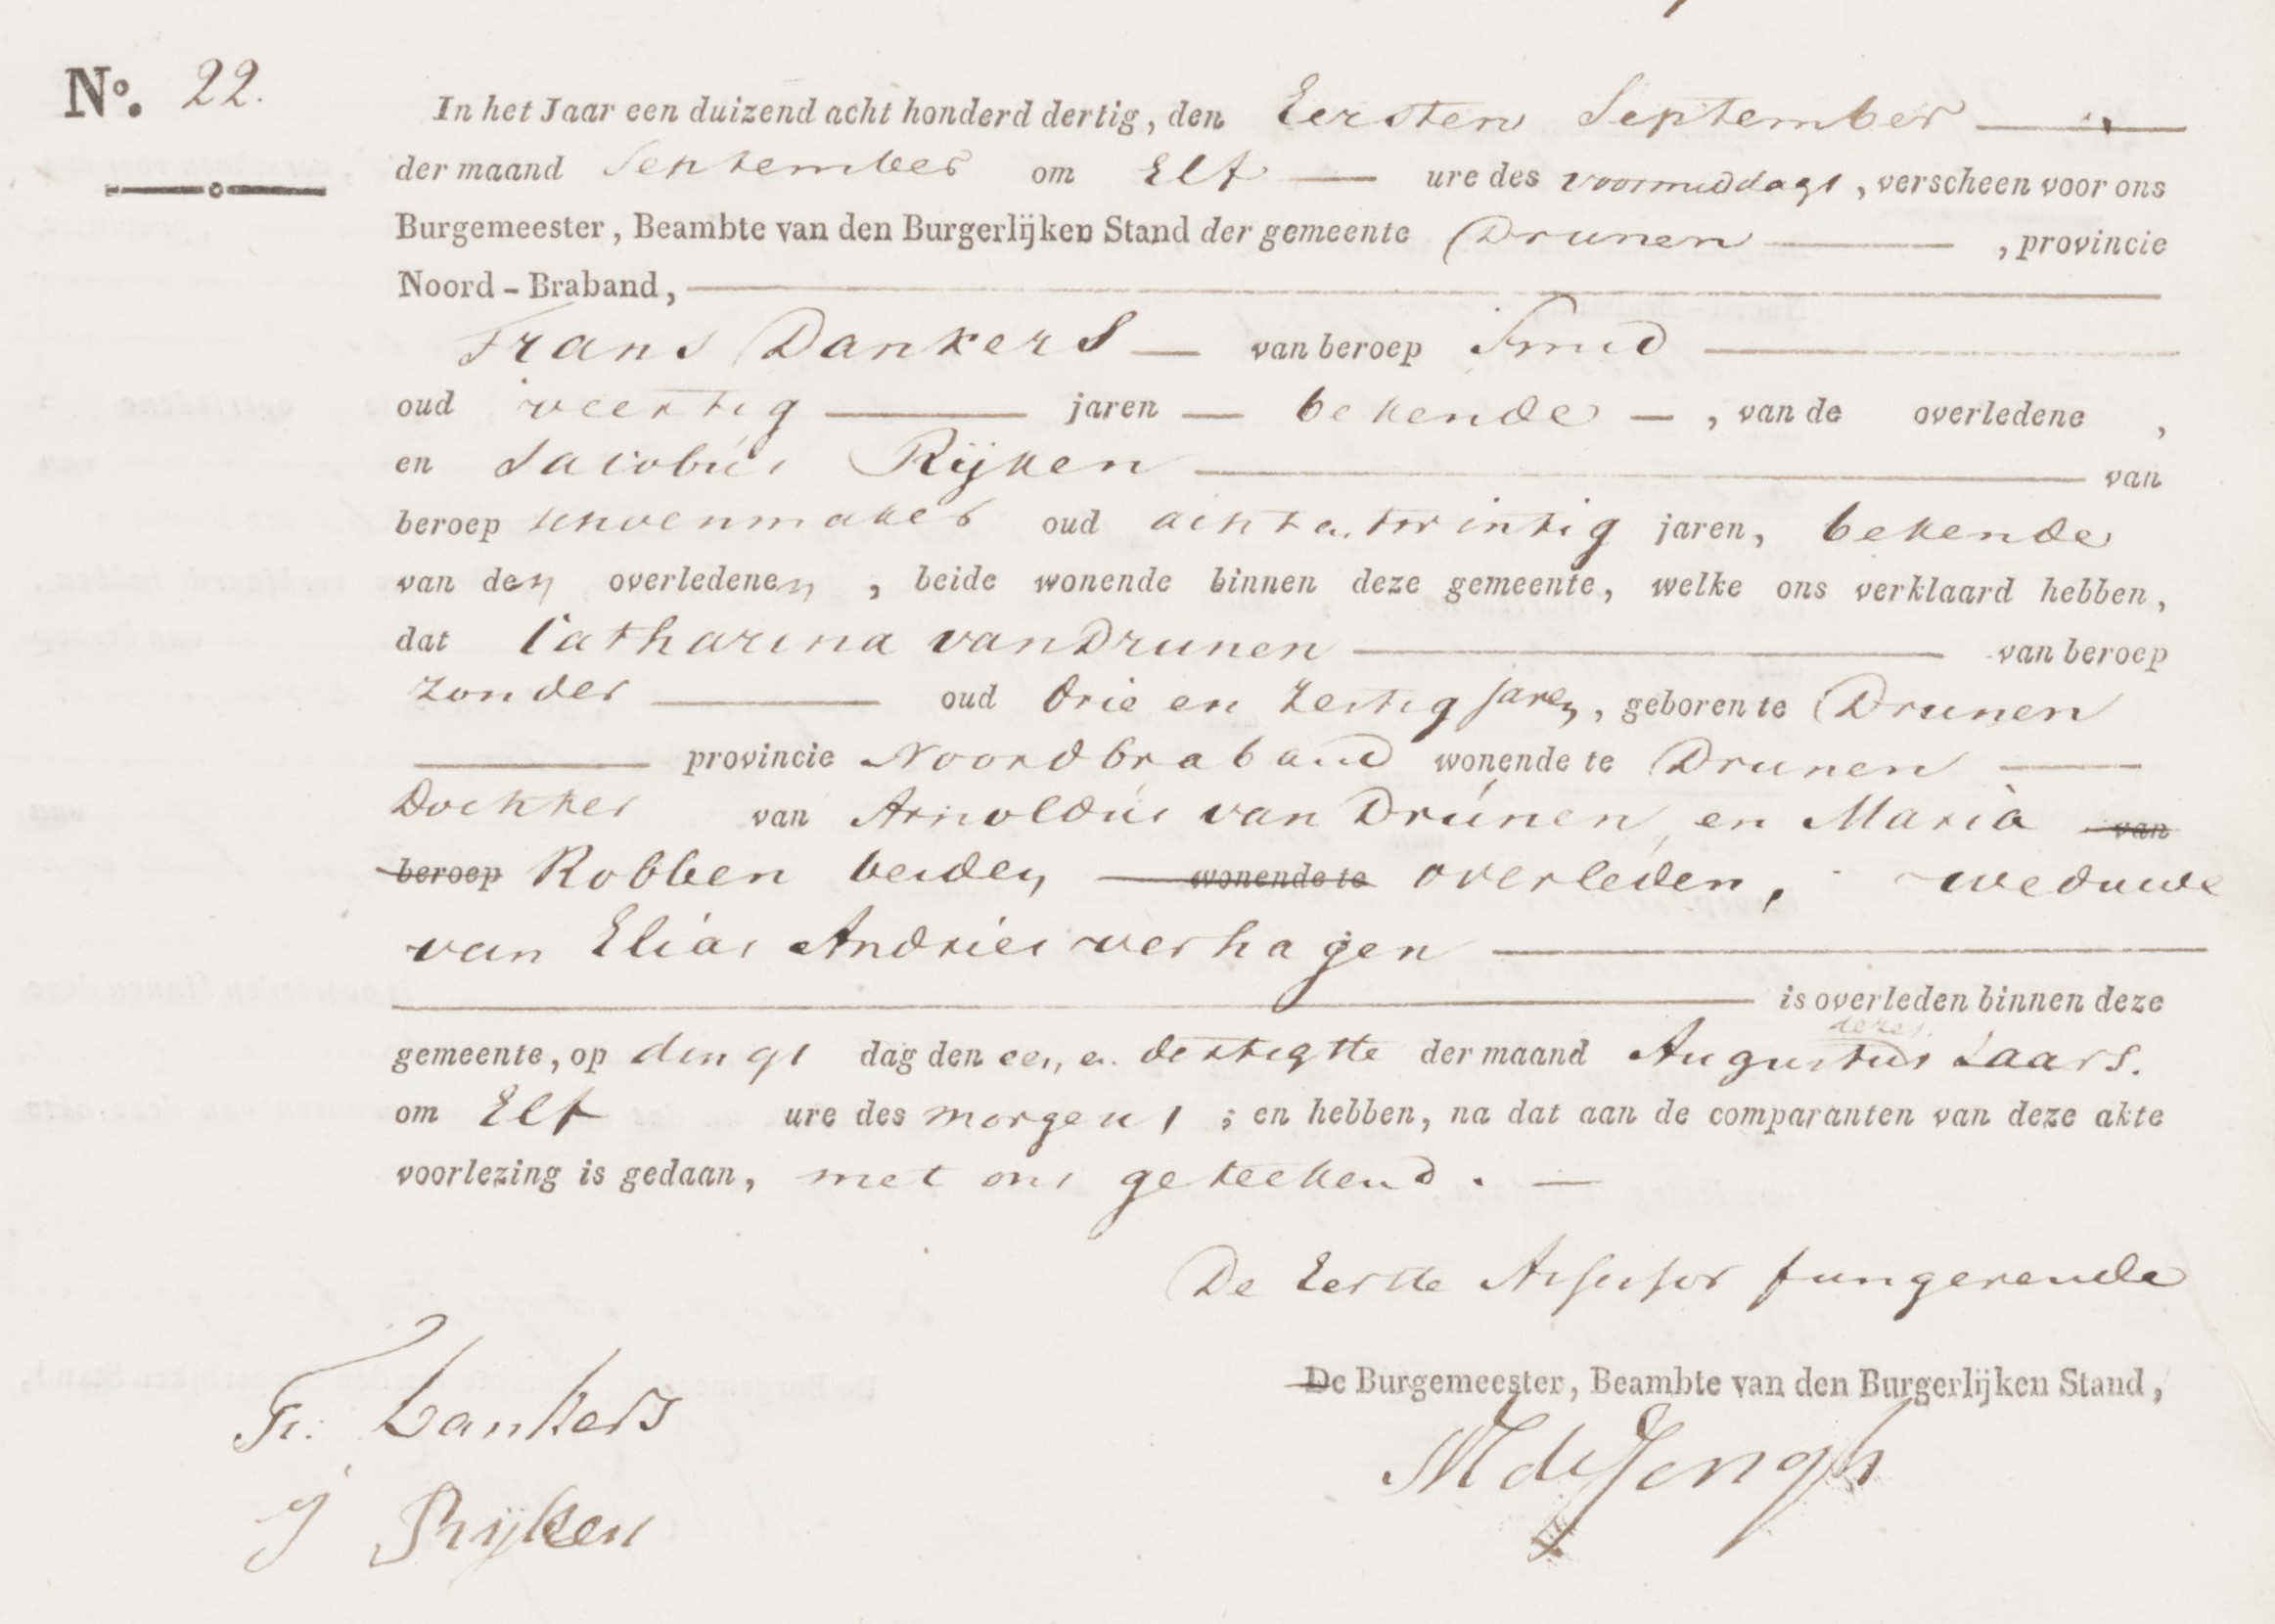 N.º 22.
In het Jaar een duizend acht honderd dertig, den Eersten September
der maand September om Elf ure des voormiddags, verscheen voor ons
Burgemeester, Beambte van den Burgerlijken Stand der gemeente Drunen, provincie
Noord-Braband,
Frans Dankers van beroep Smid
oud veertig jaren bekende, van de overledene,
en Jacobus Rijken van
beroep schoenmaker oud achtentwintig jaren, bekende
van den overledenen, beide wonende binnen deze gemeente, welke ons verklaard hebben,
dat Catharina van Drunen van beroep
zonder oud drie en Zestig jaren, geboren te Drunen
provincie Noordbraband wonende te Drunen
Dochter van Arnoldus van Drunen en Maria van
beroep Robben beiden wonende te overleden, weduwe
van Elias Andries verhagen
is overleden binnen deze
gemeente, op dings dag den een en dertigste der maand Augustus dezes Jaars.
om Elf ure des morgens; en hebben, na dat aan de comparanten van deze akte
voorlezing is gedaan, met ons geteekend.
De Eerste Assessor fungerende
De Burgemeester, Beambte van den Burgerlijken Stand,
Fr. Dankers
J Rijken